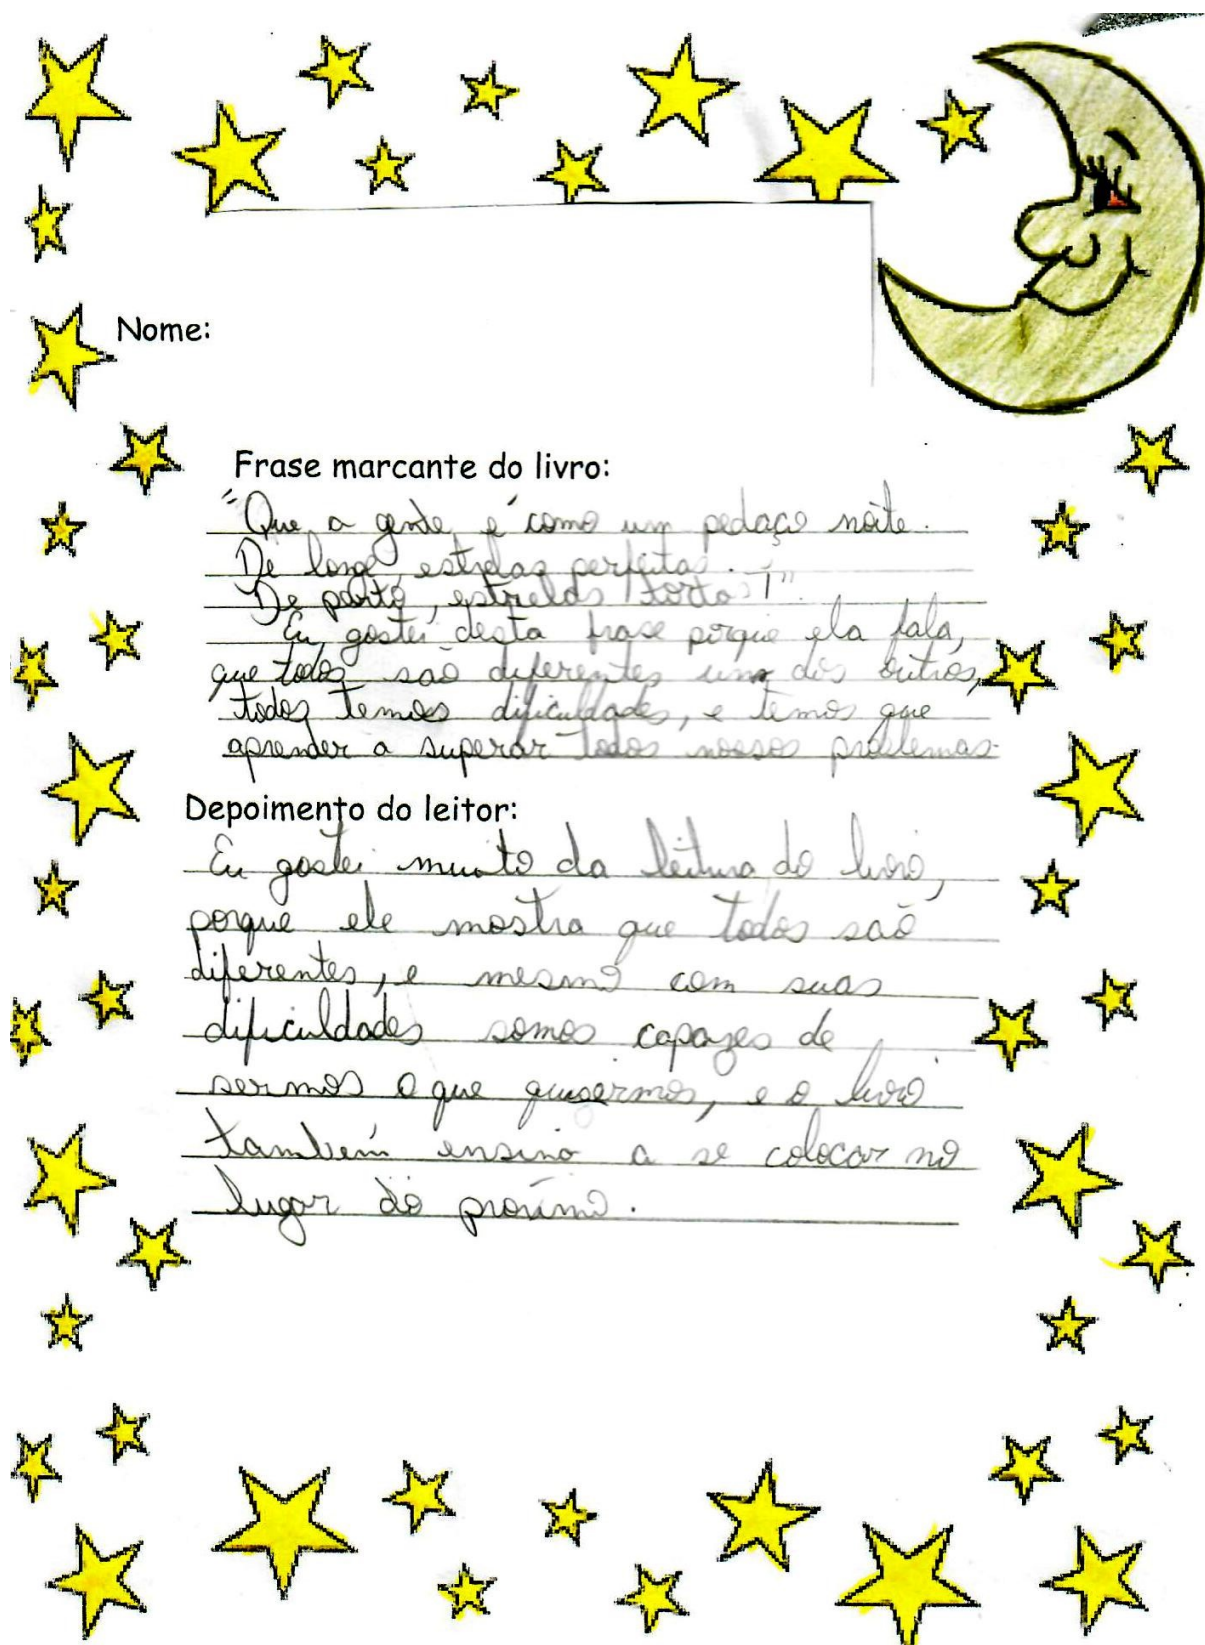 Nome:
Frase marcante do livro:
"Que a gente é como um pedaço noite.
De longe, estrelas perfeitas.
De perto, estrelas tortas!"
Eu gostei desta frase porque ela fala,
que todos são diferentes um dos outros,
todos temos dificuldades, e temos que
aprender a superar todos nossos problemas.
Depoimento do leitor:
Eu gostei muito da leitura do livro,
porque ele mostra que todos são
diferentes, e mesmo com suas
dificuldades somos capazes de
sermos o que quisermos, e o livro
também ensina a se colocar no
lugar do próximo.